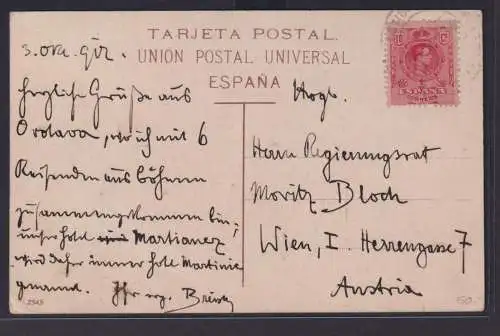 TARJETA POSTAL.
UNION POSTAL UNIVERSAL
ESPAÑA
herzliche Grüße aus
Orotava, wo ich mit 6
Reisenden aus Böhmen
zusammengekommen bin;
unser Hotel Martianez
wird daher immer Hotel Martinie
genannt.
2545
Hogb.
Herrn Regierungsrat
Moritz Bloch
Wien, I. Herrengasse 7
Austria
10 10
ESPAÑA
50.-